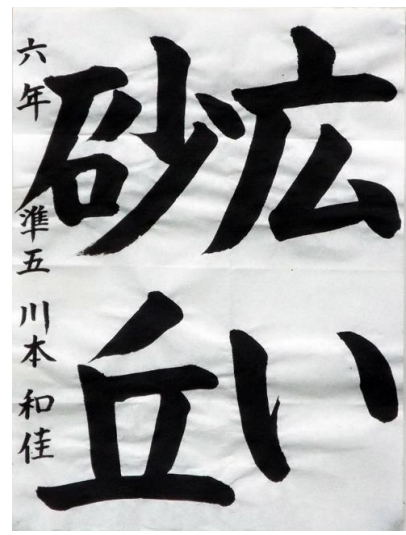 広い
砂丘
六年 準五 川本 和佳